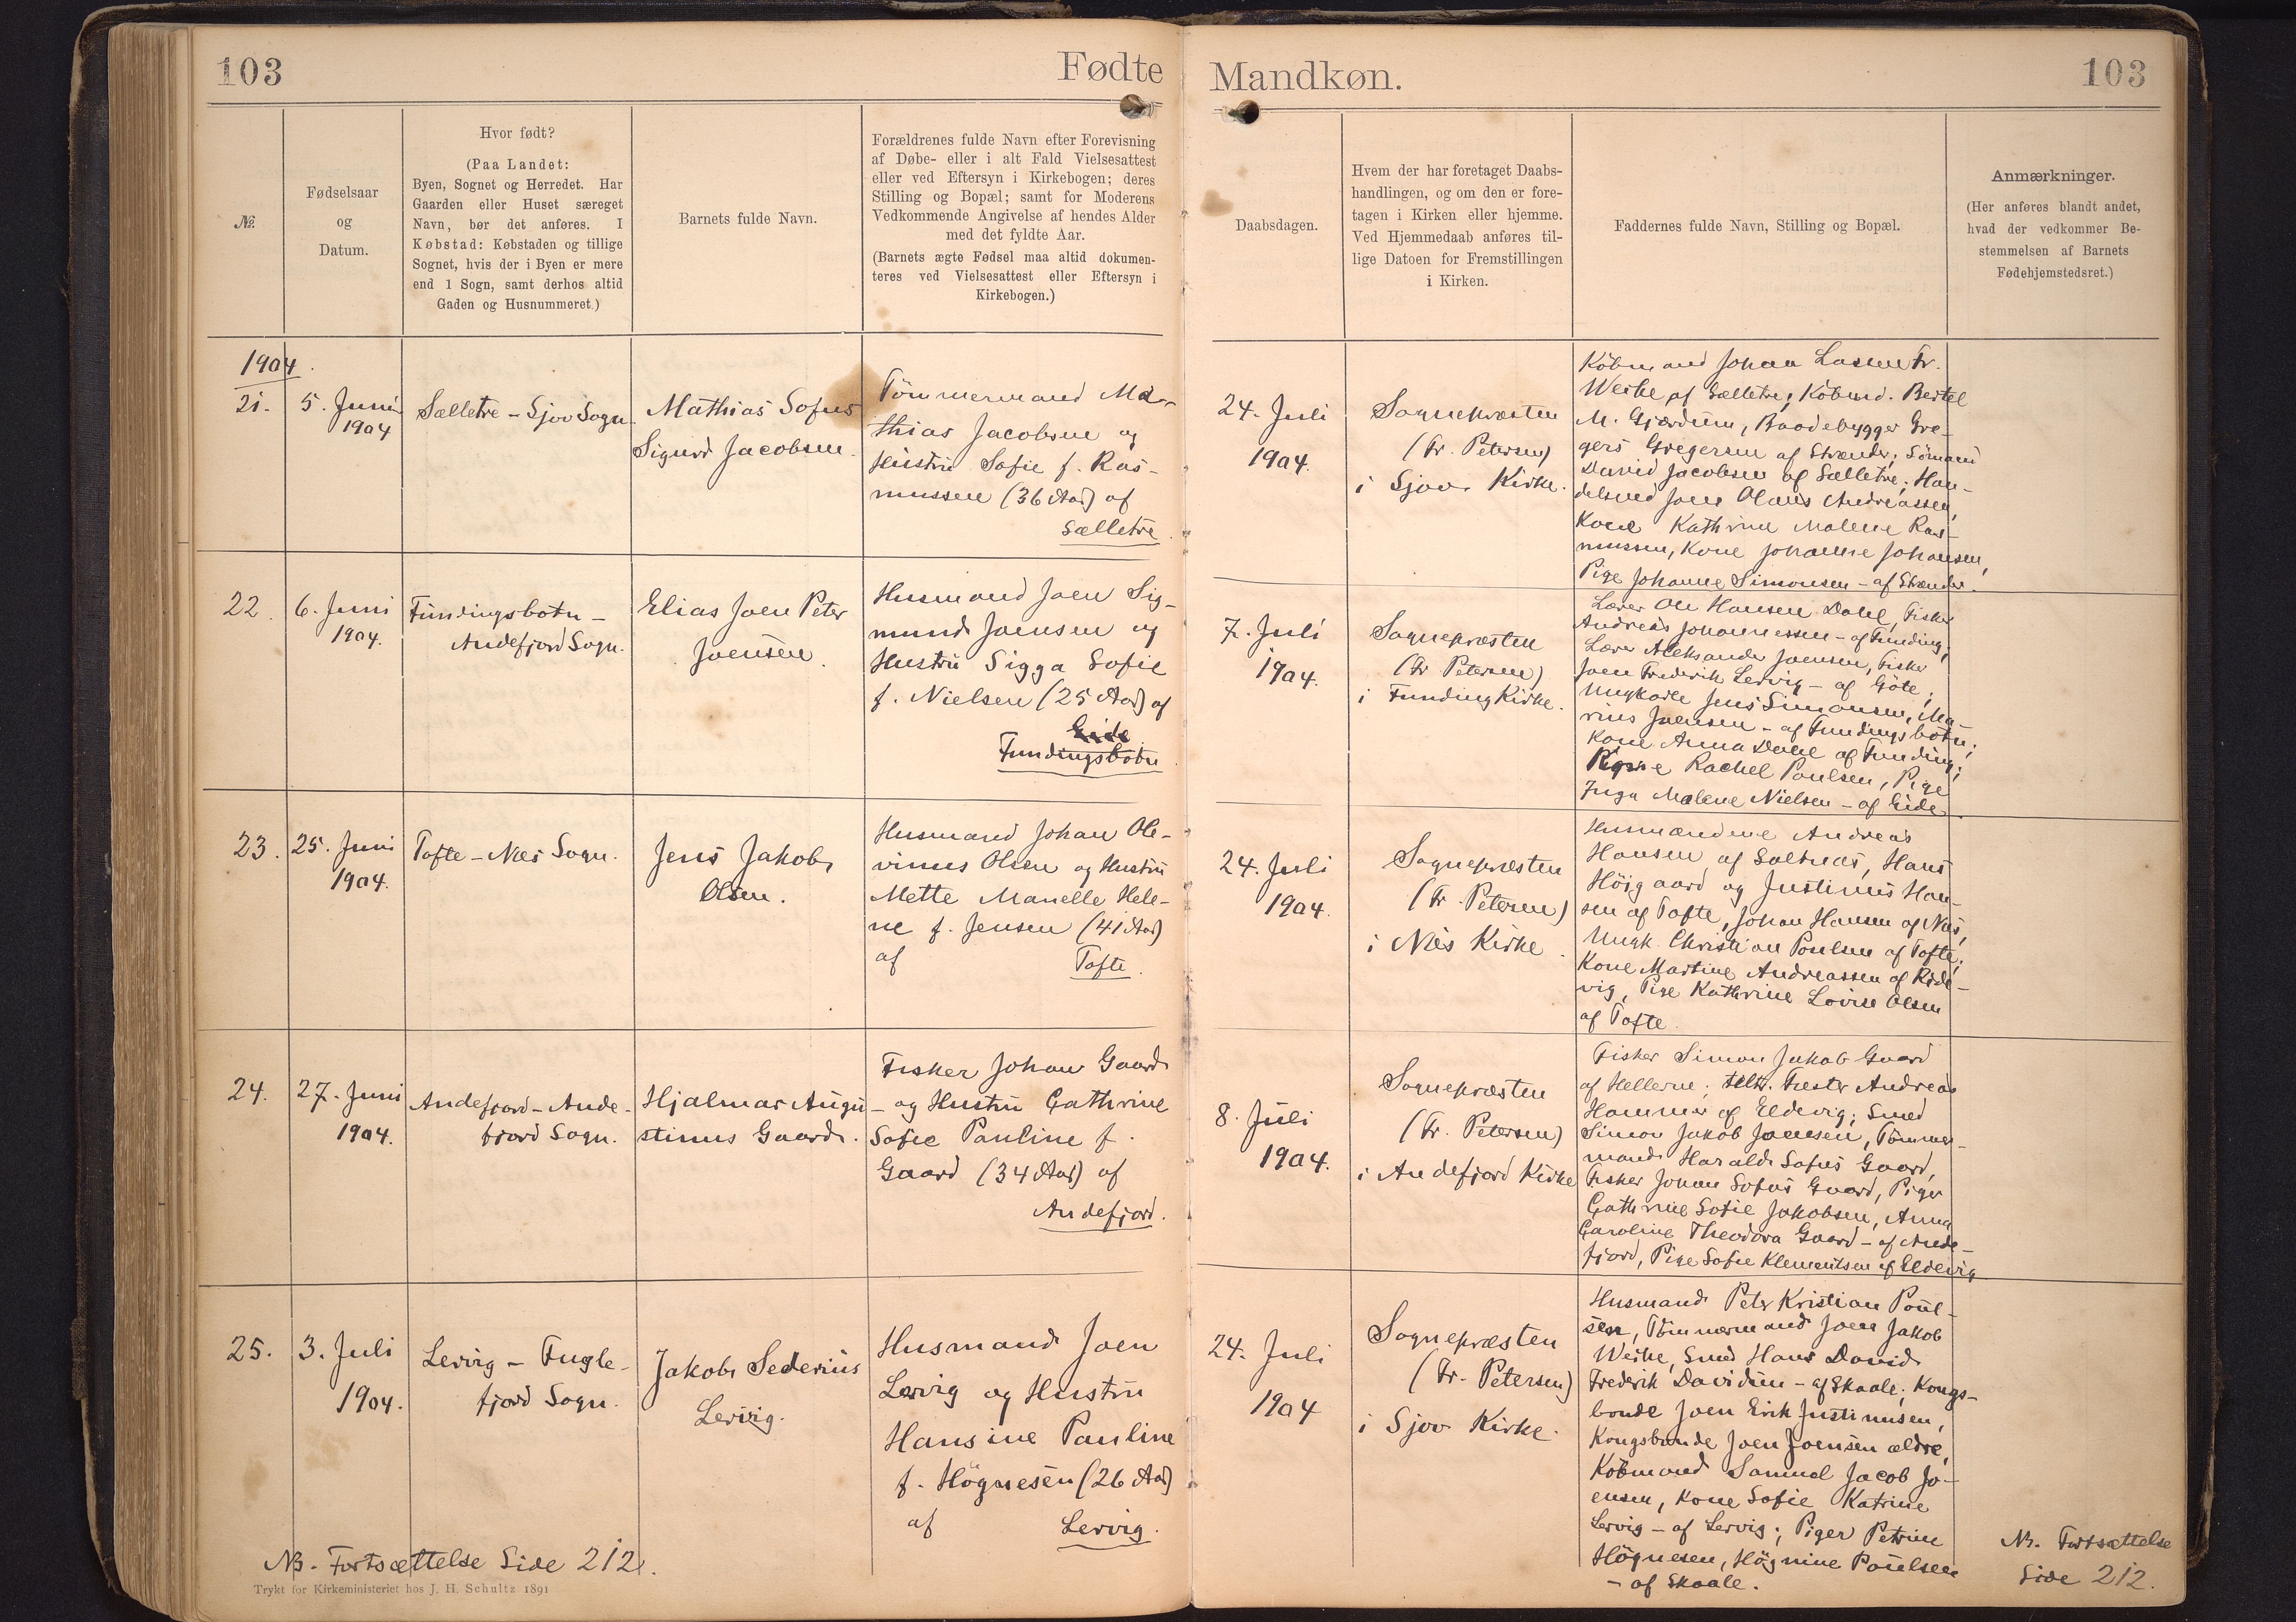 103
Fødte
Mandkøn.
103
№
Fødselsaar
og
Datum.
Hvor født?
(Paa Landet:
Byen, Sognet og Herredet. Har
Gaarden eller Huset særeget
Navn, bør det anføres. I
Købstad: Købstaden og tillige
Sognet, hvis der i Byen er mere
end 1 Sogn, samt derhos altid
Gaden og Husnummeret.)
Barnets fulde Navn.
Forældrenes fulde Navn efter Forevisning
af Døbe- eller i alt Fald Vielsesattest
eller ved Eftersyn i Kirkebogen; deres
Stilling og Bopæl; samt for Moderens
Vedkommende Angivelse af hendes Alder
med det fyldte Aar.
(Barnets ægte Fødsel maa altid dokumen-
teres ved Vielsesattest eller Eftersyn i
Kirkebogen.)
Daabsdagen.
Hvem der har foretaget Daabs-
handlingen, og om den er fore-
tagen i Kirken eller hjemme.
Ved Hjemmedaab anføres til-
lige Datoen for Fremstillingen
i Kirken.
Faddernes fulde Navn, Stilling og Bopæl.
Anmærkninger.
(Her anføres blandt andet,
hvad der vedkommer Be-
stemmelsen af Barnets
Fødehjemstedsret.)
1904.
21.
5. Juni
1904
Sælletre - Sjov Sogn.
Mathias Sofus
Sigurd Jacobsen.
Tömmermand Ma-
thias Jacobsen og
Hustru Sofie f. Ras-
mussen (36 Aar) af
Sælletre.
24. Juli
1904.
Sognepræsten
(Fr. Petersen)
i Sjov Kirke.
Købmand Johan Lassen Fr.
Weihe af Sælletre; Købmd. Bertel
M. Gjærdum, Baadebygger Gre-
gers Gregersen af Strænder; Sömand
David Jacobsen af Sælletre; Han-
delsmd Jens Olaus Andreassen,
Kone Kathrine Malene Ras-
mussen, Kone Johanne Johansen,
Pige Johanne Simonsen - af Strænder.
22.
6. Juni
1904.
Fundingsbotn -
Andefjord Sogn.
Elias Joen Peter
Joensen.
Husmand Joen Sig-
mund Joensen og
Hustru Sigga Sofie
f. Nielsen (25 Aar) af
Eide
Fundingsbotn
7. Juli
1904.
Sognepræsten
(Fr Petersen)
i Funding Kirke.
Lærer Ole Hansen Dahl, Fisker
Andreas Johannessen - af Funding;
Lærer Aleksander Joensen, Fisker
Joen Frederik Lervig - af Göte;
Ungkarle Jens Simonsen, Ma-
rius Joensen - af Fundingsbotn;
Kone Anna Dahl af Funding;
Rachel Poulsen, Pige
Inga Malene Nielsen - af Eide.
23.
25. Juni
1904.
Tofte - Næs Sogn.
Jens Jakob
Olsen.
Husmand Johan Ole-
vinus Olsen og Hustru
Mette Manelle Hele-
ne f. Jensen (41 Aar)
af Tofte.
24. Juli
1904.
Sognepræsten
(Fr. Petersen)
i Næs Kirke.
Husmændene Andreas
Hansen af Saltnæs, Hans
Höjgaard og Justinus Han-
sen af Tofte, Johan Hansen af Næs,
Ungk. Christian Poulsen af Tofte;
Kone Martine Andreassen af Ride-
vig, Pige Kathrine Lovise Olsen
af Tofte.
24.
27. Juni
1904.
Andefjord - Ande-
fjord Sogn.
Hjalmar Augu-
stinus Gaard.
Fisker Johan Gaard
og Hustru Cathrine
Sofie Pauline f.
Gaard (34 Aar) af
Andefjord.
8. Juli
1904.
Sognepræsten
(Fr. Petersen)
i Andefjord Kirke
Fisker Simon Jakob Gaard
af Hellerne; Andreas
Hammer af Eldevig; Smed
Simon Jakob Joensen, Tömmer-
mand Harald Sofus Gaard,
Fisker Johan Sofus Gaard, Piger
Cathrine Sofie Jakobsen, Anna
Caroline Theodora Gaard - af Ande-
fjord, Pige Sofie Klementsen af Eldevig
25.
3. Juli
1904.
Lervig - Fugle-
fjord Sogn.
Jakob Sederius
Lervig.
Husmand Joen
Lervig og Hustru
Hansine Pauline
f. Högnesen (26 Aar)
af Lervig.
24. Juli
1904
Sognepræsten
(Fr. Petersen)
i Sjov Kirke.
Husmand Peter Kristian Poul-
sen, Tömmermand Joen Jakob
Weihe, Smed Hans David
Frederik Davidsen - af Skaale; Kongs-
bonde Joen Erik Justinusen,
Kongsbonde Joen Joensen ældre,
Købmand Samuel Jacob Jo-
ensen, Kone Sofie Katrine
Lervig - af Lervig; Piger Petrine
Högnesen, Högnine Poulsen
- af Skaale.
NB. Fortsættelse Side 212.
NB. Fortsættelse
Side 212.
Trykt for Kirkeministeriet hos J. H. Schultz 1891